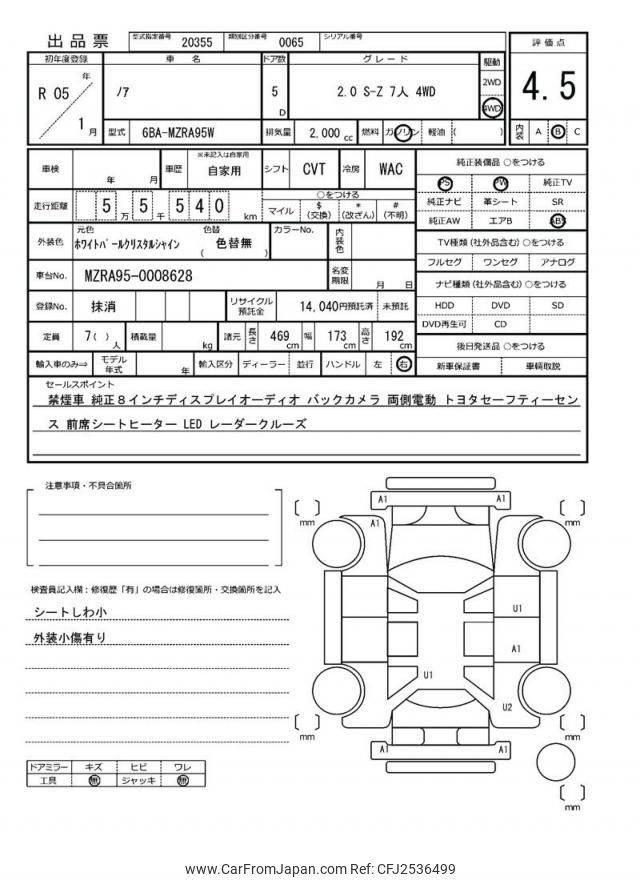 出品票 型式指定番号 20355 類別区分番号 0065 シリアル番号
評価点
4.5
初年度登録 車名 ドア数 グレード 駆動
R 05 年 1 月 ノア 5 D 2.0 S-Z 7人 4WD 2WD 4WD
型式 6BA-MZRA95W 排気量 2,000 cc 燃料 ガソリン 軽油 ( ) 内装 A B C
車検 年 月 車歴 ※未記入は自家用 自家用 シフト CVT 冷房 WAC
走行距離 5 5万 5千 540 km ○をつける
マイル $(交換) *(改ざん) #(不明)
外装色 元色 ホワイトパールクリスタルシャイン 色替 ( 色替無 ) カラーNo. 内装色
車台No. MZRA95-0008628 名変期限 月 日
登録No. 抹消 リサイクル預託金 14,040円預託済 未預託
定員 7( )人 積載量 kg 諸元 長さ 469cm 幅 173cm 高さ 192cm
輸入車のみ⇒ モデル年式 年 輸入区分 ディーラー 並行 ハンドル 左 右
純正装備品 ○をつける
PS PW 純正TV
純正ナビ 革シート SR
純正AW エアB ABS
TV種類(社外品含む)○をつける
フルセグ ワンセグ アナログ
ナビ種類(社外品含む)○をつける
HDD DVD SD
DVD再生可 CD
後日発送品 ○をつける
新車保証書 車輌取説
セールスポイント
禁煙車 純正8インチディスプレイオーディオ バックカメラ 両側電動 トヨタセーフティーセン
ス 前席シートヒーター LED レーダークルーズ
注意事項・不具合箇所
検査員記入欄:修復歴「有」の場合は修復箇所・交換箇所を記入
シートしわ小
外装小傷有り
ドアミラー キズ ヒビ ワレ
工具 無 ジャッキ 無
A1 A1
mm mm
A1 A1
U1
A1
U1
U2
mm mm
A1 A1
mm
www.CarFromJapan.com Ref: CFJ2536499